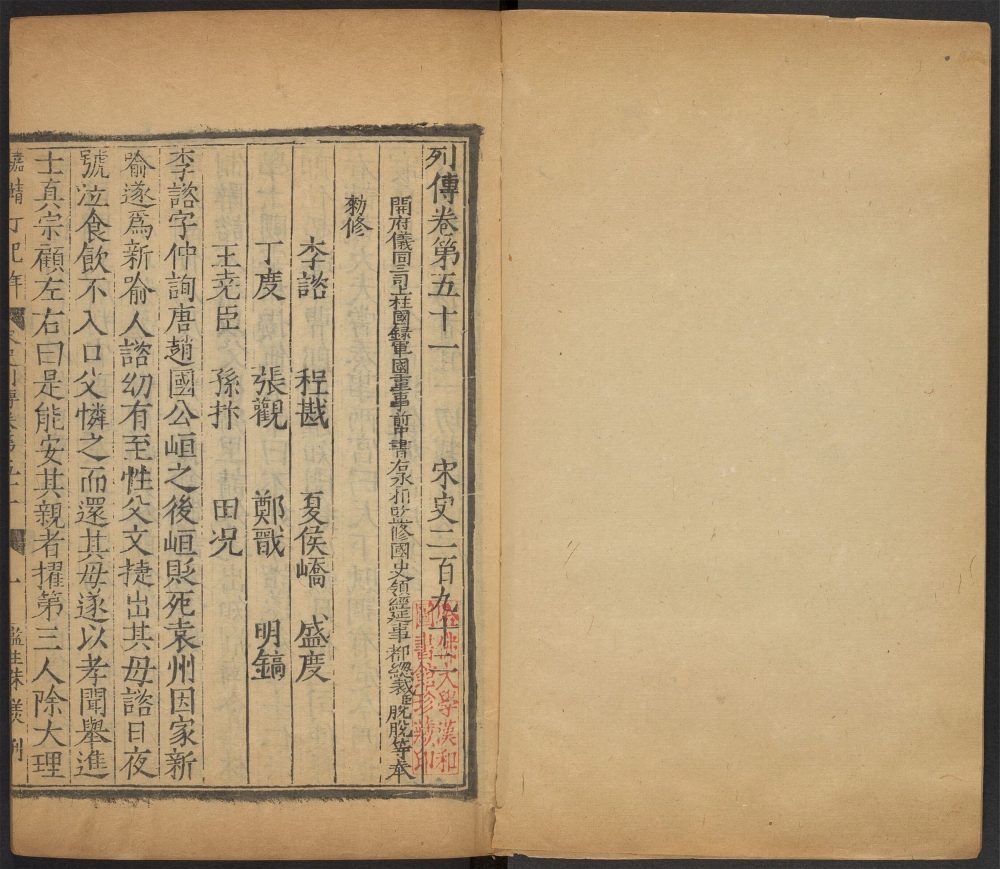 列傳卷第五十一 宋史二百九十二
開府儀同三司上柱國録軍國重事前中書右丞相監修國史領經筵事都總裁脫脫等奉
勑修
李諮 程戡 夏侯嶠 盛度
丁度 張觀 鄭戩 明鎬
王堯臣 孫抃 田況
李諮字仲詢唐趙國公峘之後峘貶死袁州因家新
喻遂為新喻人諮幼有至性父文捷出其母諮日夜
號泣食飲不入口父憐之而還其母遂以孝聞舉進
士真宗顧左右曰是能安其親者擢第三人除大理
嘉靖丁巳年 宋史列傳卷第五十一 一 監生
哈佛大學漢和圖書館珍藏印